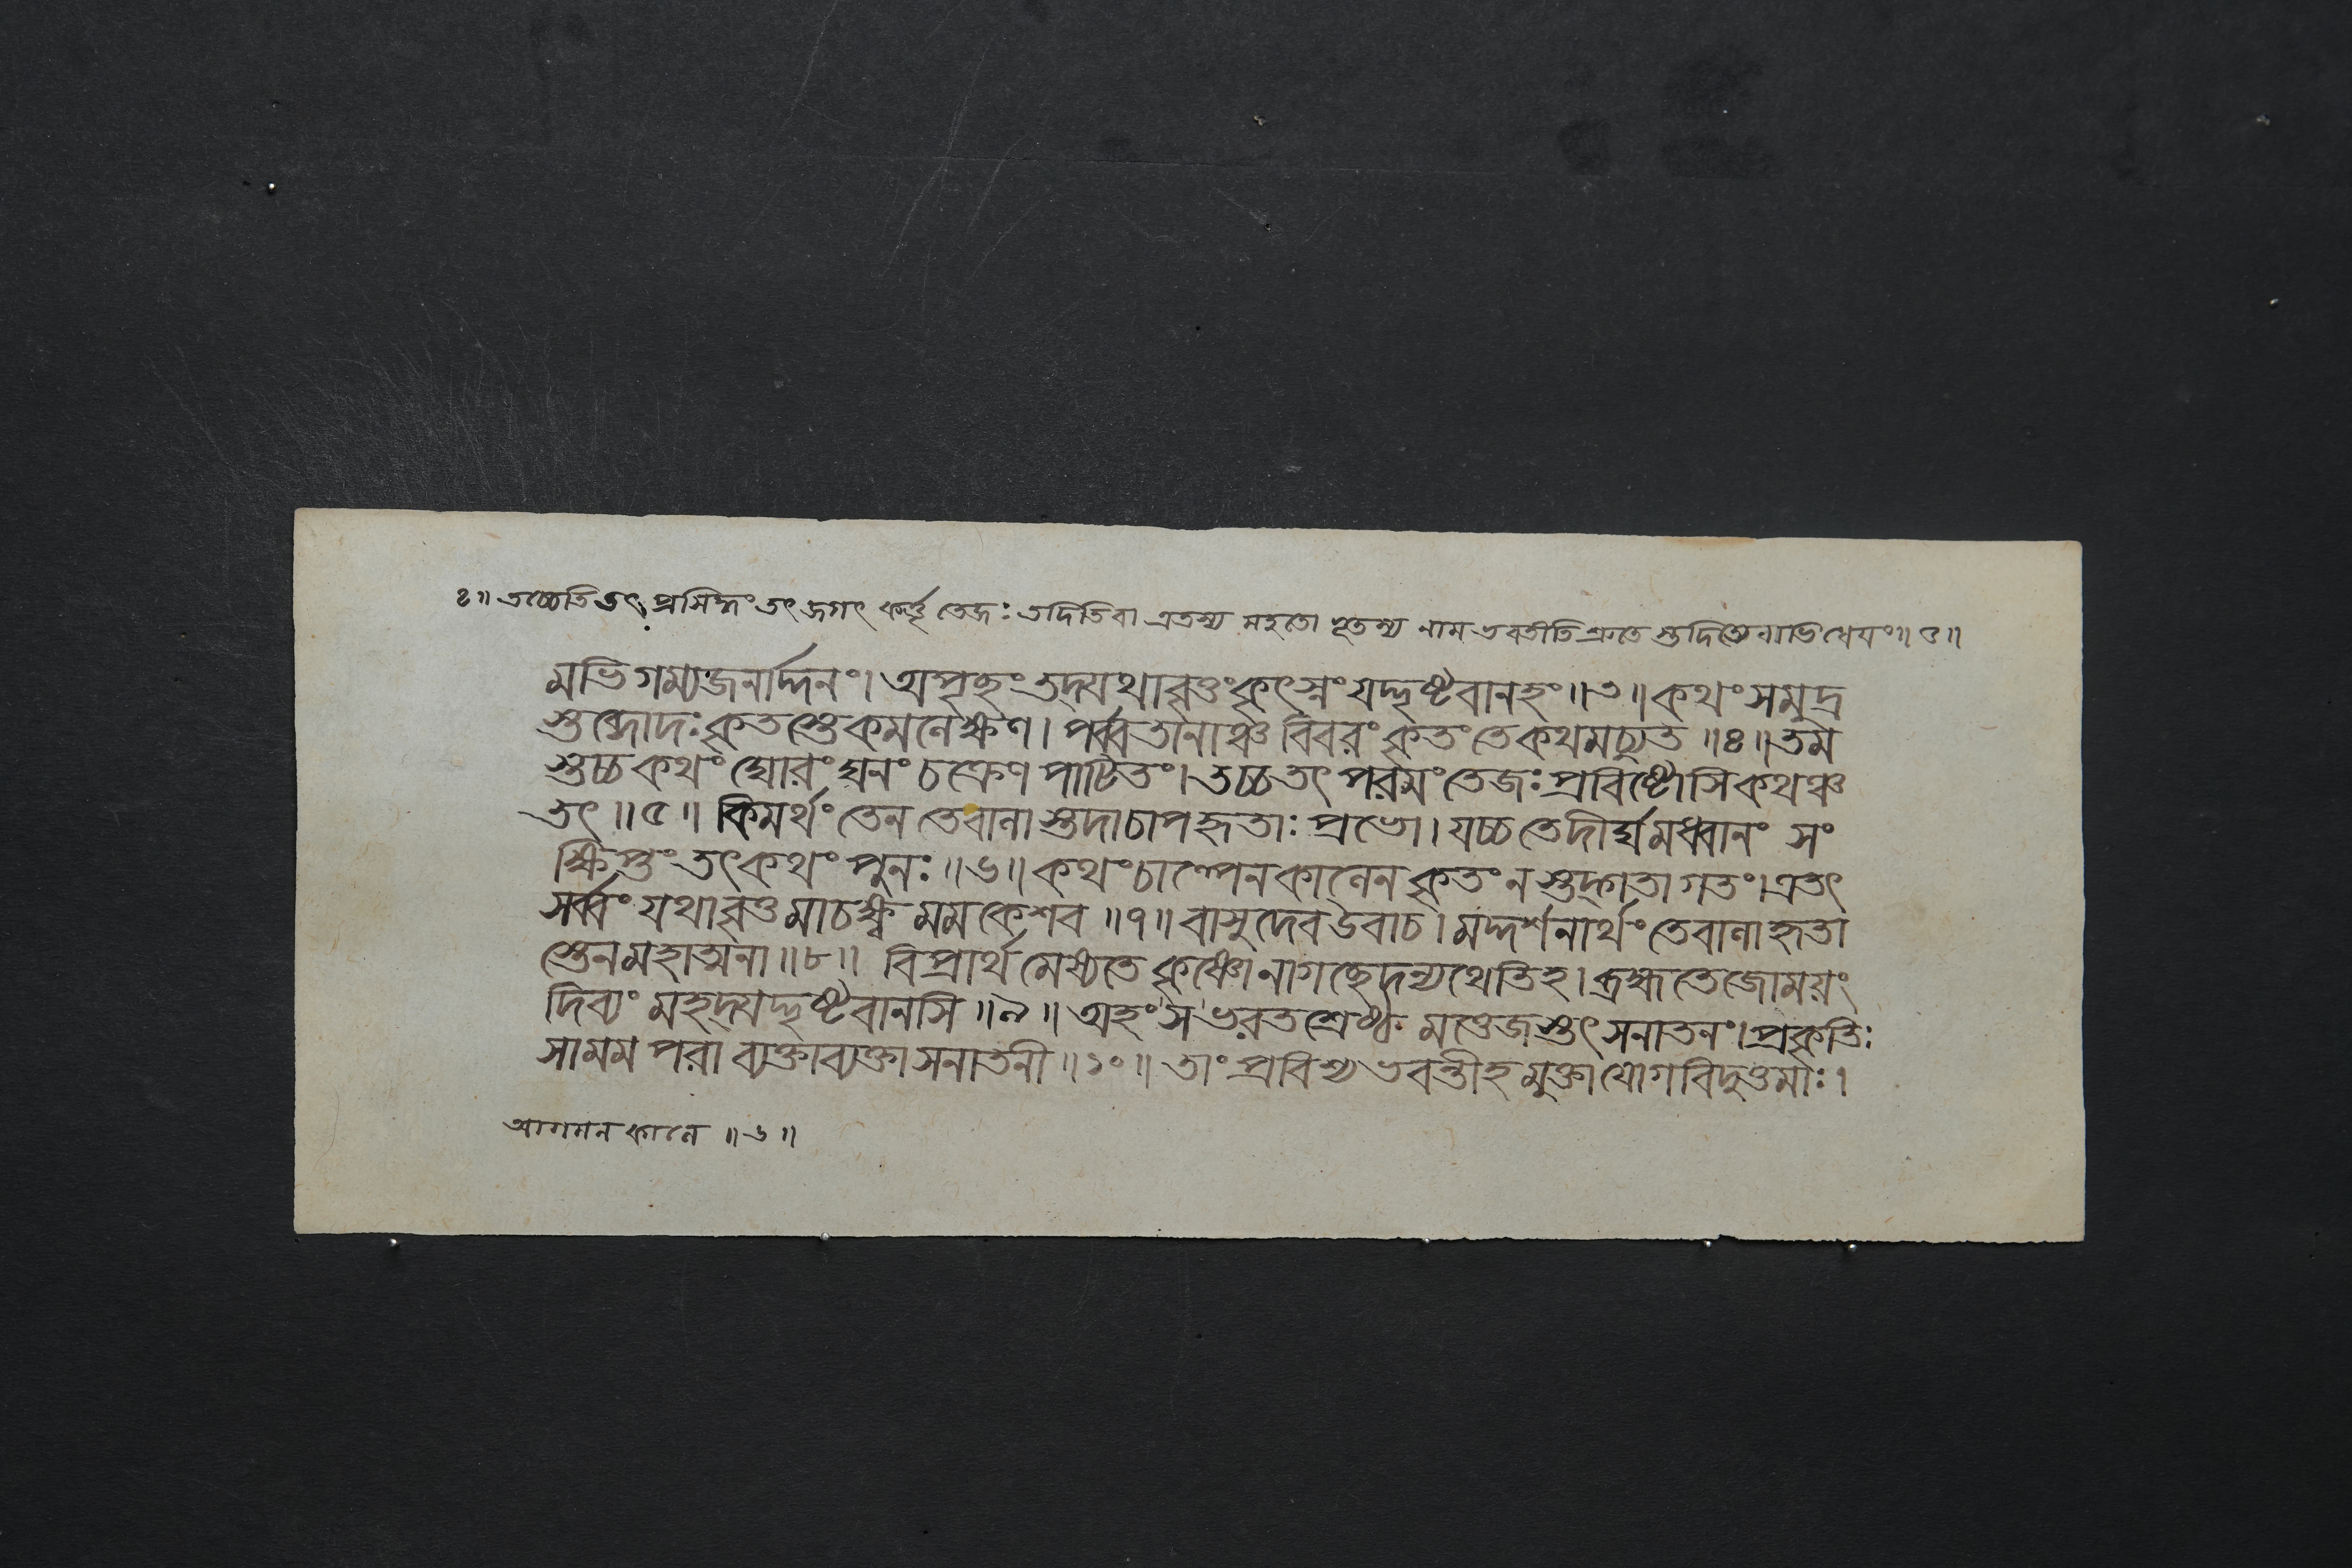 ৪॥ তচ্চেতি তৎ প্রসিদ্ধং তৎ জগৎ কর্ত্তৃ তেজঃ তদিতি বা এতস্য মহতো ভূতস্য নাম ভবতীতি শ্রুতে স্তদিত্যেবাভিধেয়ং॥ ৫॥
মভিগম্যজনার্দ্দনং। অপৃচ্ছং তদ্যথাবৃত্তং কৃৎস্নং যদ্দৃষ্টবানহং॥ ৩॥ কথং সমুদ্র
স্তব্দোদঃ কৃতস্তে কমলেক্ষণ। পর্ব্বতানাঞ্চ বিবরং কৃতং তে কথমচ্যুত॥ ৪॥ তম
স্তচ্চ কথং ঘোরং ঘনং চক্রেণ পাটিতং। তচ্চ তৎ পরমং তেজঃ প্রবিষ্টোসি কথঞ্চ
তৎ॥ ৫॥ কিমর্থং তেন তে বালা স্তদাচাপহৃতাঃ প্রভো। যচ্চ তে দীর্ঘমধ্বানং সং
ক্ষিপ্তং তৎ কথং পুনঃ॥ ৬॥ কথং চাল্পেন কালেন কৃতং ন স্তদ্গতাগতং। এতৎ
সর্ব্বং যথাবৃত্তমাচক্ষ্ব মম কেশব॥ ৭॥ বাসুদেব উবাচ। মদ্দর্শনার্থং তে বালা হৃতা
স্তেন মহাত্মনা॥ ৮॥ বিপ্রার্থমেষ্যতে কৃষ্ণো নাগচ্ছেদন্যথেতিহ। ব্রহ্মতেজোময়ং
দিব্যং মহদ্যদ্দৃষ্টবানসি॥ ৯॥ অহং স ভরতশ্রেষ্ঠ মত্তেজস্তৎ সনাতনং। প্রকৃতিঃ
সা মম পরা ব্যক্তাব্যক্তা সনাতনী॥ ১০॥ তাং প্রবিশ্য ভবন্তীহ মুক্তা যোগবিদুত্তমাঃ।
আগমন কালে॥ ৬॥